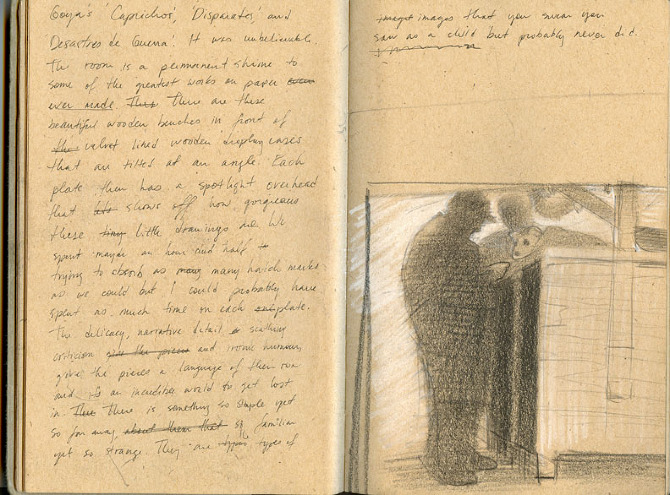 Goya's 'Caprichos', 'Disparates' and
Desastres de Guerra'. It was unbelievable.
The room is a permanent shrine to
some of the greatest works on paper
ever made. There are these
beautiful wooden benches in front of
the velvet lined wooden display cases
that are tilted at an angle. Each
plate then has a spotlight overhead
that shows off how gorgeous
these tiny little drawings are. We
spent maybe an hour and half to
trying to absorb as many many hatch marks
as we could but I could probably have
spent as much time on each plate.
The delicacy, narrative detail scathing
criticism and ironic humour,
give the pieces a language of their own
and an incredible world to get lost
in. There is something so simple yet
so far away about them that so familiar
yet so strange. They are types of
images that you swear you
saw as a child but probably never did.